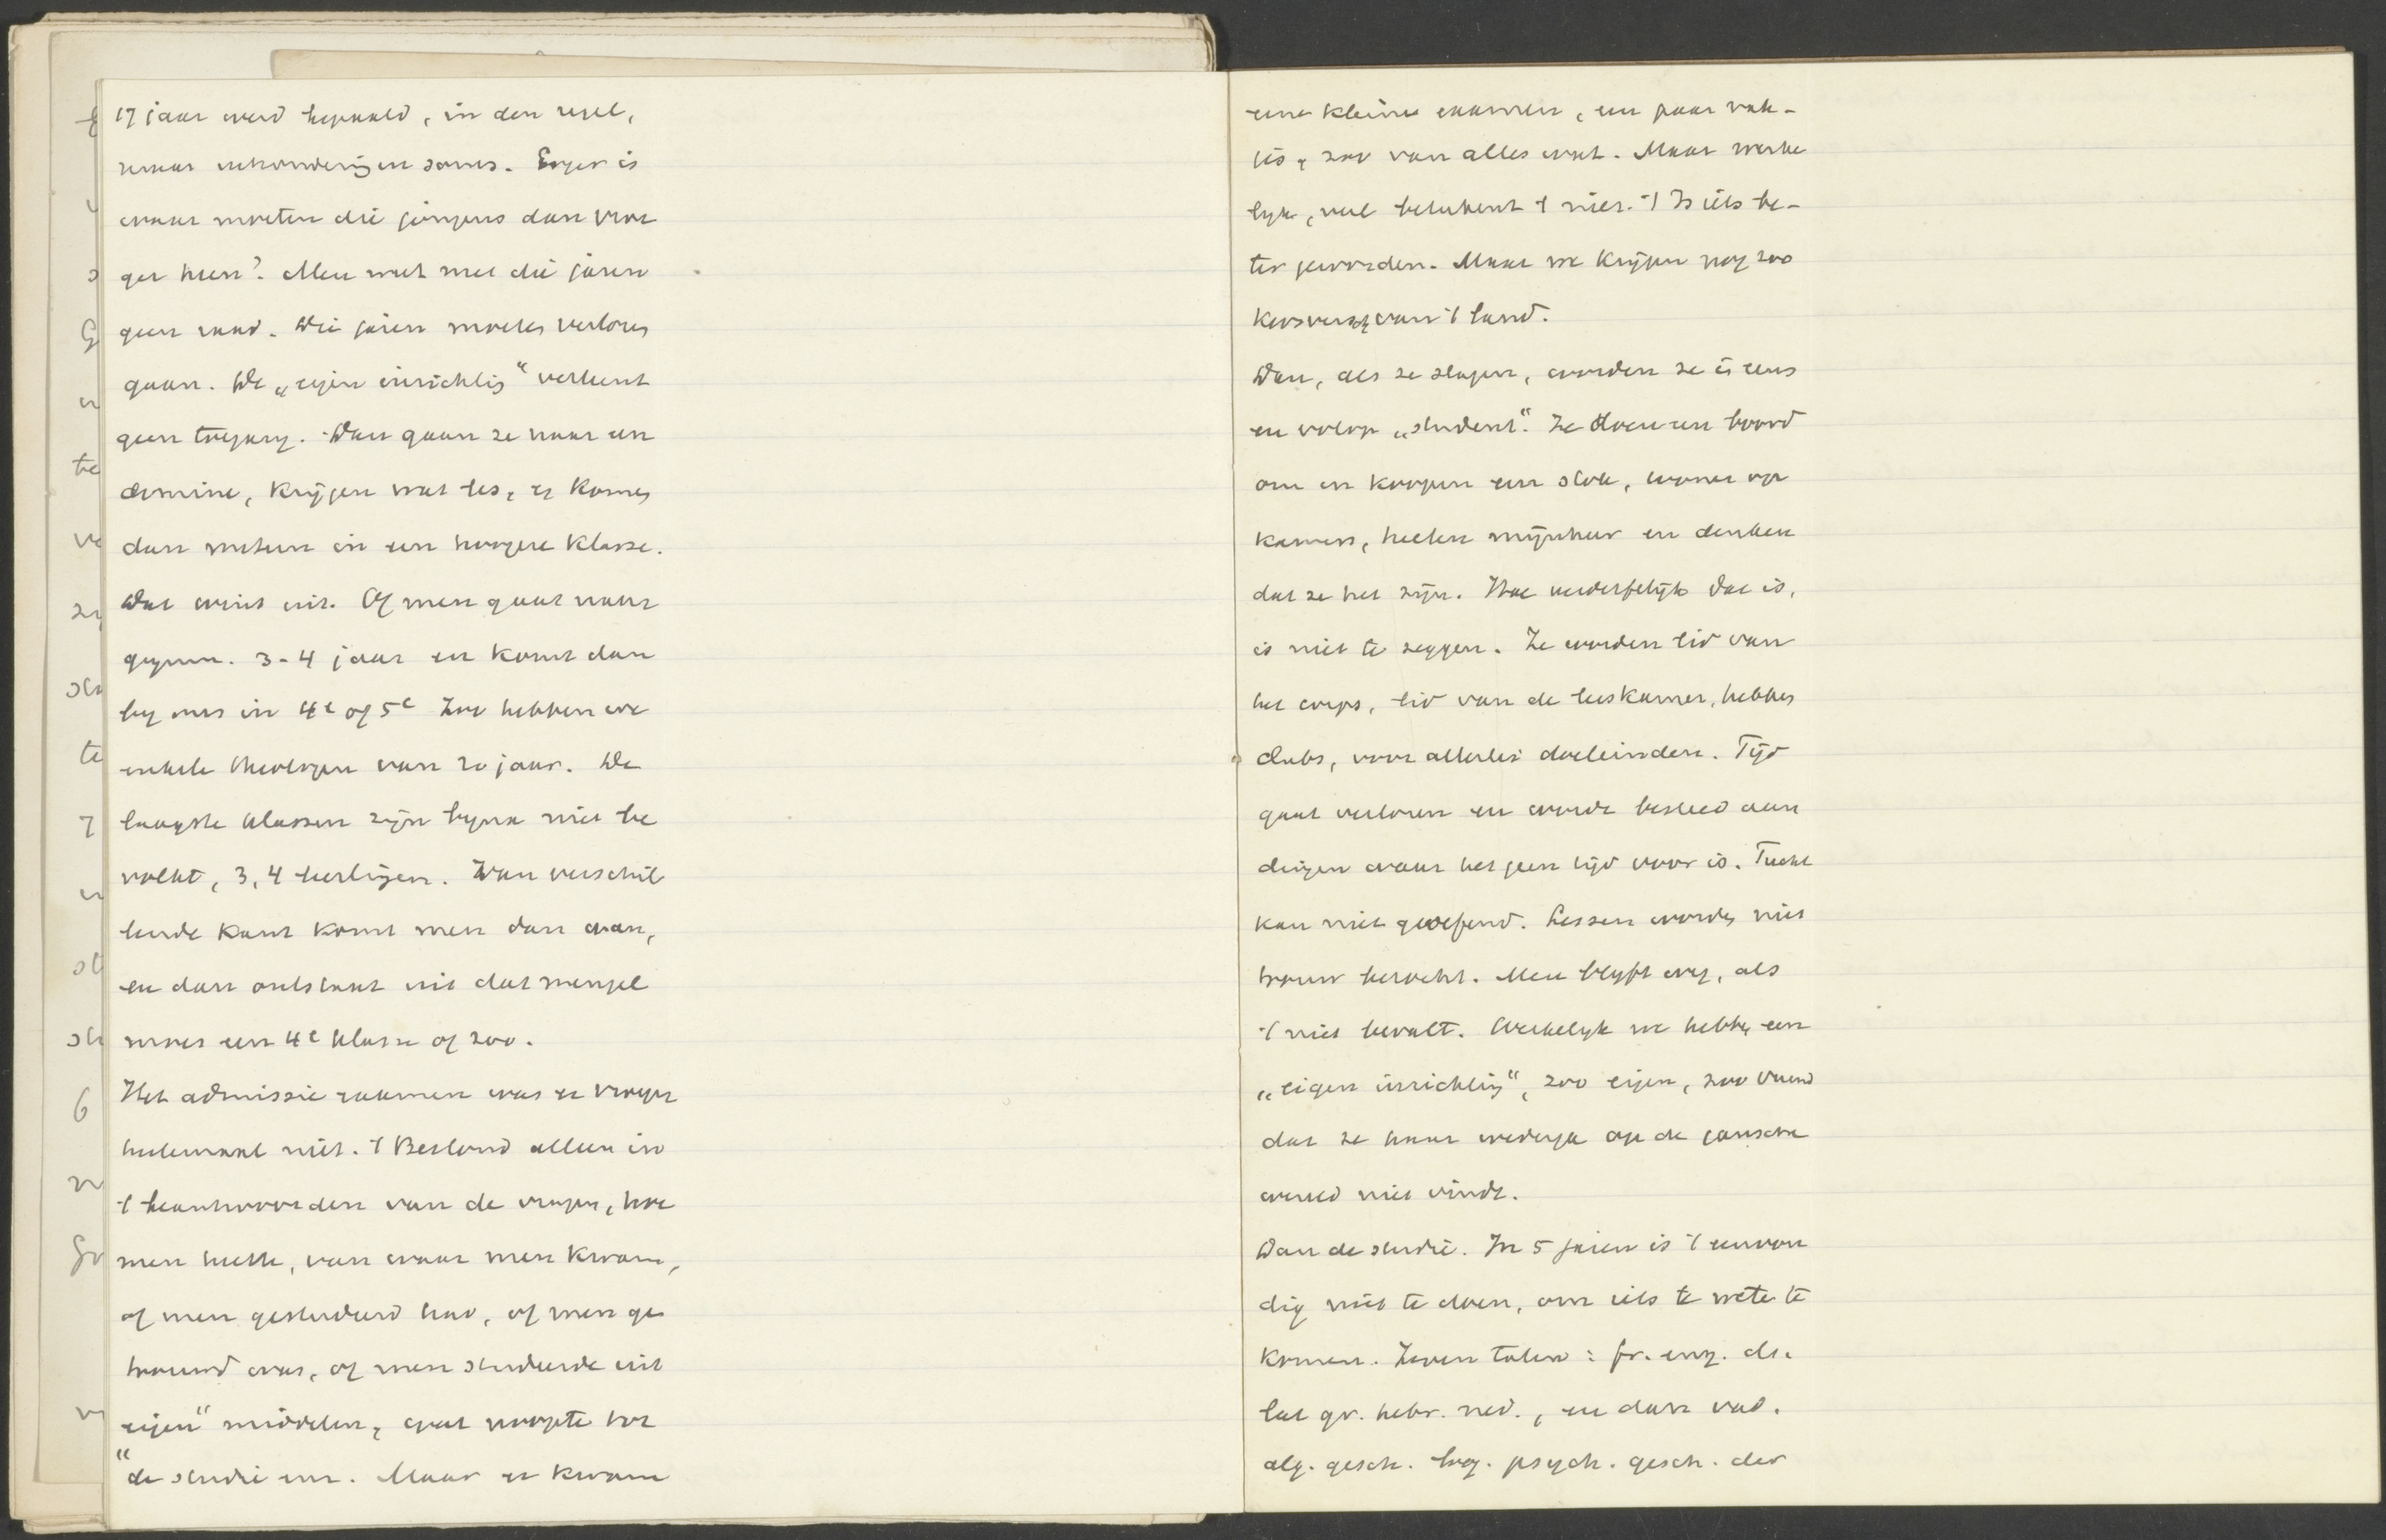 17 jaar werd bepaald, in den regel,
maar uitzonderingen soms. Erger is
waar moeten die jongens dan vroe
ger heen? Men weet met die jaren
geen raad. Die jaren moeten verloren
gaan. De „eigen inrichting" verleent
geen toegang. Dan gaan ze naar een
domine, krijgen wat les, en komen
dan meteen in een hoogere klasse.
Dat wint uit. Of men gaat naar
gymn. 3-4 jaar en komt dan
by ons in 4e of 5e Zoo hebben we
enkele theologen van 20 jaar. De
laagste klassen zijn byna niet be
volkt, 3, 4 leerlingen. Van verschil
lende kant komt men dan aan,
en dan ontstaat uit dat mengel
moes een 4e klasse of zoo.
Het admissie examen was er vroeger
heelemaal niet. 't Bestond alleen in
't beantwoorden van de vragen, hoe
men heette, van waar men kwam,
of men gestudeerd had, of men ge
trouwd was, of men studeerde uit
eigen" middelen, wat noopte tot
"de studie enz. Maar er kwam
een kleine examen, een paar vak-
jes, zoo van alles wat. Maar werke
lyk, veel beteekent 't niet. 't Is iets be-
ter geworden. Maar we krijgen nog zoo
kersversch van 't land.
Dan, als ze slagen, worden ze in eens
en volop „student". Ze doen een boord
om en koopen een stok, wonen op
kamers, heeten mijnheer en denken
dat ze het zijn. Hoe verderfelijk dat is,
is niet te zeggen. Ze worden lid van
het corps, lid van de leeskamer, hebben
clubs, voor allerlei doeleinden. Tijd
gaat verloren en wordt besteed aan
dingen waar het geen tijd voor is. Tucht
kan niet geoefend. Lessen worden niet
trouw bezocht. Men blyft weg, als
't niet bevalt. Werkelyk we hebben een
„eigen inrichting", zoo eigen, zoo vreemd
dat ze haar wederga op de gansche
wereld niet vindt.
Dan de studie. In 5 jaren is 't eenvou
dig niet te doen, om iets te weten te
komen. Zeven talen: fr. eng. du.
lat gr. hebr. ned., en dan vad.
alg. gesch. log. psych. gesch. der